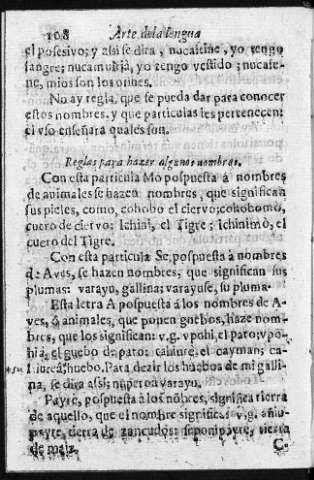 108 Arte de la lengua
el posesivo; y assi se dira, nucaitine, yo tengo
sangre; yo tengo vestido;
ne, mios son los orines.
No ay regla, que se pueda dar para conocer
estos nombres, y que particulas les pertenecen:
el vso enseñarà quales son.
Reglas para hazer algunos nombres.
Con esta particula Mo pospuesta à nombres
de animales se hazen nombres, que significan
sus pieles, como, cohobo el ciervo; cohobomo,
cuero de ciervo: Ichini, el Tigre; Ichinimò, el
cuero del Tigre.
Con esta particula Se, pospuesta à nombres
de Aves, se hazen nombres, que significan sus
plumas: varayu, gallina; varayuse, su pluma.
Esta letra A pospuesta à los nombres de A-
ves, ò animales, que ponen guebos, haze nom-
bres, que los significan: v.g. vpohi, el pato; vpo-
hia, el guebo de pato: el cayman; ca-
huebo. Para dezir los huebos de mi galli-
na, se dira assi; varayu.
Payre, pospuesta à los nõbres, significa tierra
de aquello, que el nombre significa: v.g.
payre, tierra de zancudos: seponipayre, tierra
de maiz. C.